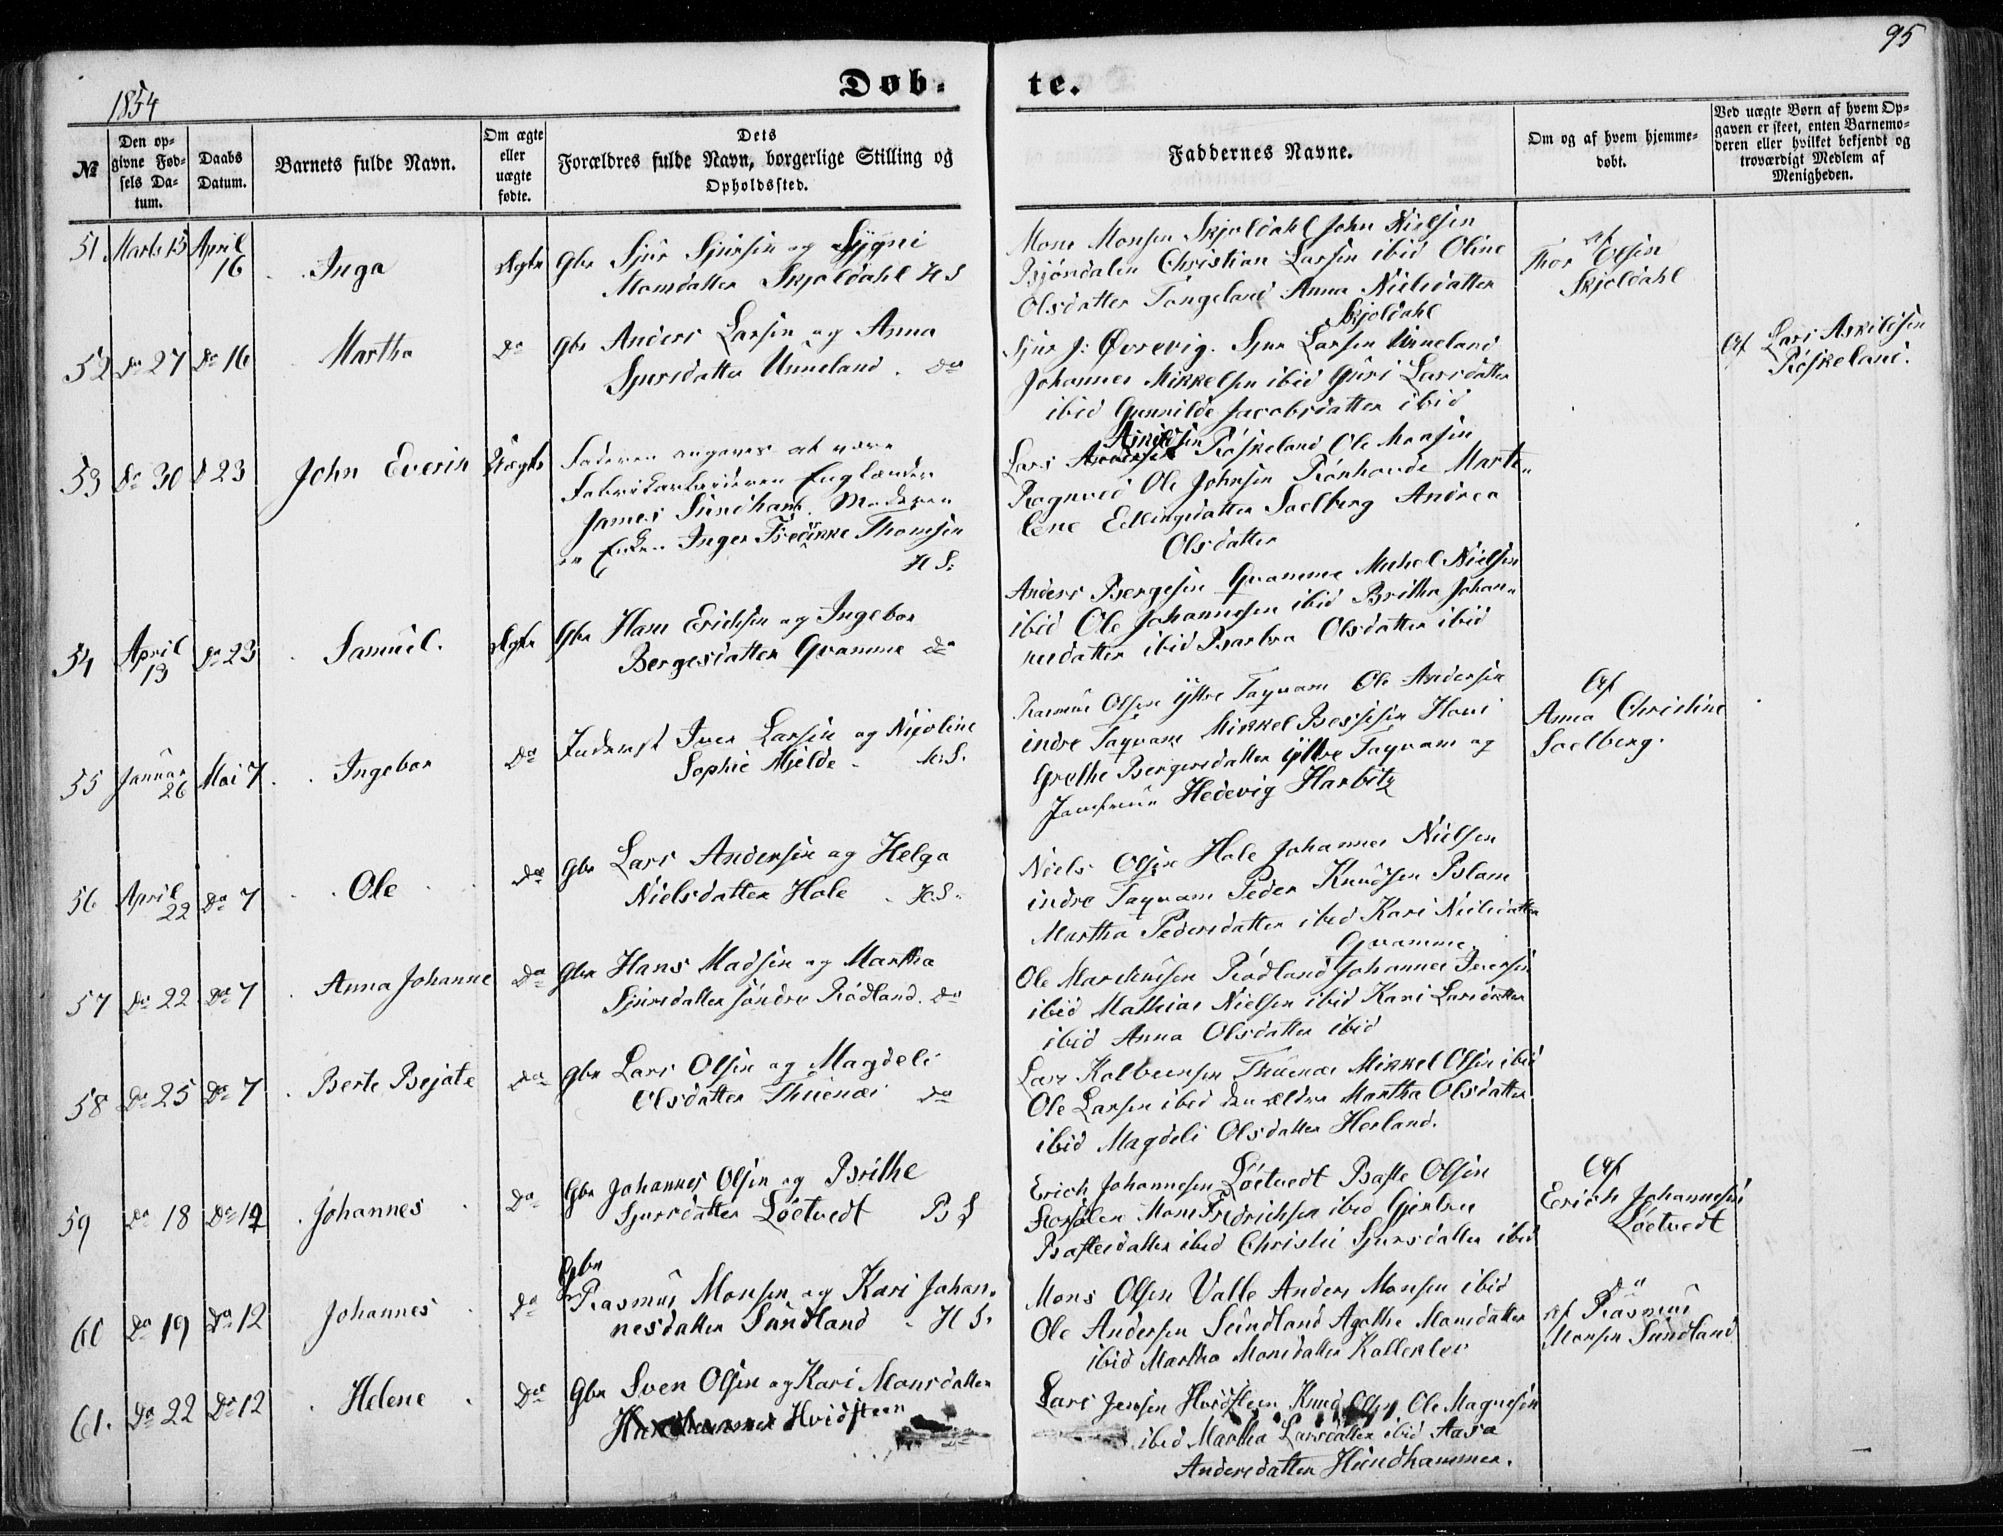 95
1854
Døb-
te.
№
Den op-
givne Fød-
sels Da-
tum.
Daabs
Datum.
Barnets fulde Navn.
Om ægte
eller
uægte
fødte.
Dets
Forældres fulde Navn, borgerlige Stilling og
Opholdssted.
Faddernes Navne.
Om og af hvem hjemme-
døbt.
Ved uægte Børn af hvem Op-
gaven er skeet, enten Barnemo-
deren eller hvilket bekjendt og
troværdigt Medlem af
Menigheden.
51 Marts 15 April
16
Inga
Ægte
Gbr Sjur Sjursen og Sygni
Monsdatter Skjoldahl HS
Mons Monsen Skjoldahl John Nielsen
Bjørndalen Christian Larsen ibid Oline
Olsdatter Tangeland Anna Nielsdatter
Skjoldahl
af
Thor Olsen
Skjoldahl
52 Do 27 Do 16
Martha
Do
Gbr Anders Larsen og Anna
Sjursdatter Unneland. Do
Sjur J: Øvrevig. Sjur Larsen Unneland
Johannes Mikkelsen ibid Guri Larsdatter
ibid Gunnilde Jacobsdatter ibid
Af Lars Askildsen
Röskeland.
53 Do 30 D 23
John Everin
Uægte
Faderen angaves at være
Fabrikarbeideren Engländer
James Sundham. Moderen
er Enken Inger Fredrikke Thomsen
H S:
Askildsen
Lars Röskeland Ole Monsen
Ragnved Ole Johnsen Rönhovde Marte-
lene Ellingsdatter Saelberg Andrea
Olsdatter
54 April
13
Do 23
Samuel.
Ægte
Gbr Hans Erichsen og Ingebor
Bergesdatter Qvamme do
Anders Bergesen Qvamme Michel Nielsen
ibid Ole Johannesen ibid Britha Johan-
nesdatter ibid Barbra Olsdatter ibid
55 Januar
26
Mai 7
Ingebor
Do
Inderst Iver Larsen og Nicoline
Sophie Mjelde H.S.
Rasmus Olsen yttre Taqvam Ole Andersen
indre Taqvam Mikkel Bessesen
Grethe Bergersdatter yttre Taqvam og
Jomfrue Hedevig Harbitz
Af
Anna Christine
Saelberg.
56 April
22
Do 7
Ole
Do
Gbr Lars Andersen og Helga
Nielsdatter Hole H.S.
Niels Olsen Hole Johannes Nielsen
indre Taqvam Peder Knudsen Blam
Martha Pedersdatter ibid Kari Nielsdatter
Qvamme.
57 Do 22 Do 7
Anna Johanne
Do
Gbr Hans Madsen og Martha
Sjursdatter söndre Rödland. Do
Ole Martinusen Rödland Johannes Iversen
ibid Mathias Nielsen ibid Kari Larsdatter
ibid Anna Olsdatter ibid
58 Do 25 Do 7
Berte Bejate
Do
Gbr Lars Olsen og Magdeli
Olsdatter Thuenæs do
Lars Kolbensen Thuenæs Mikkel Olsen ibid
Ole Larsen ibid den ældre Martha Olsdatter
ibid Magdeli Olsdatter Herland.
59 Do 18 Do 12
Johannes
Do
Gbr Johannes Olsen og Brithe
Sjursdatter Löetvedt B S
Erich Johannesen Löetvedt Baste Olsen
Mons Fredrichsen ibid Gjertru
Bastesdatter ibid Christi Sjursdatter ibid
Af
Erich Johannesen
Löetvedt
60 Do 19 Do 12
Johannes
Do
Gbr
Rasmus Monsen og Kari Johan-
nesdatter Sundland H S.
Mons Olsen Valle Anders Monsen ibid
Ole Andersen Sundland Agathe Monsdatter
ibid Martha Monsdatter Kalleklev
af Rasmus
Monsen Sundland
61. Do 22 Do 12
Helene
Do
Gbr Sven Olsen og Kari Monsdatter
Hvidsteen
Lars Jensen Hvidsteen Knud Olsen Ole Magnesen
ibid Martha Larsdatter ibid Aasa
Andersdatter Hundhammer.